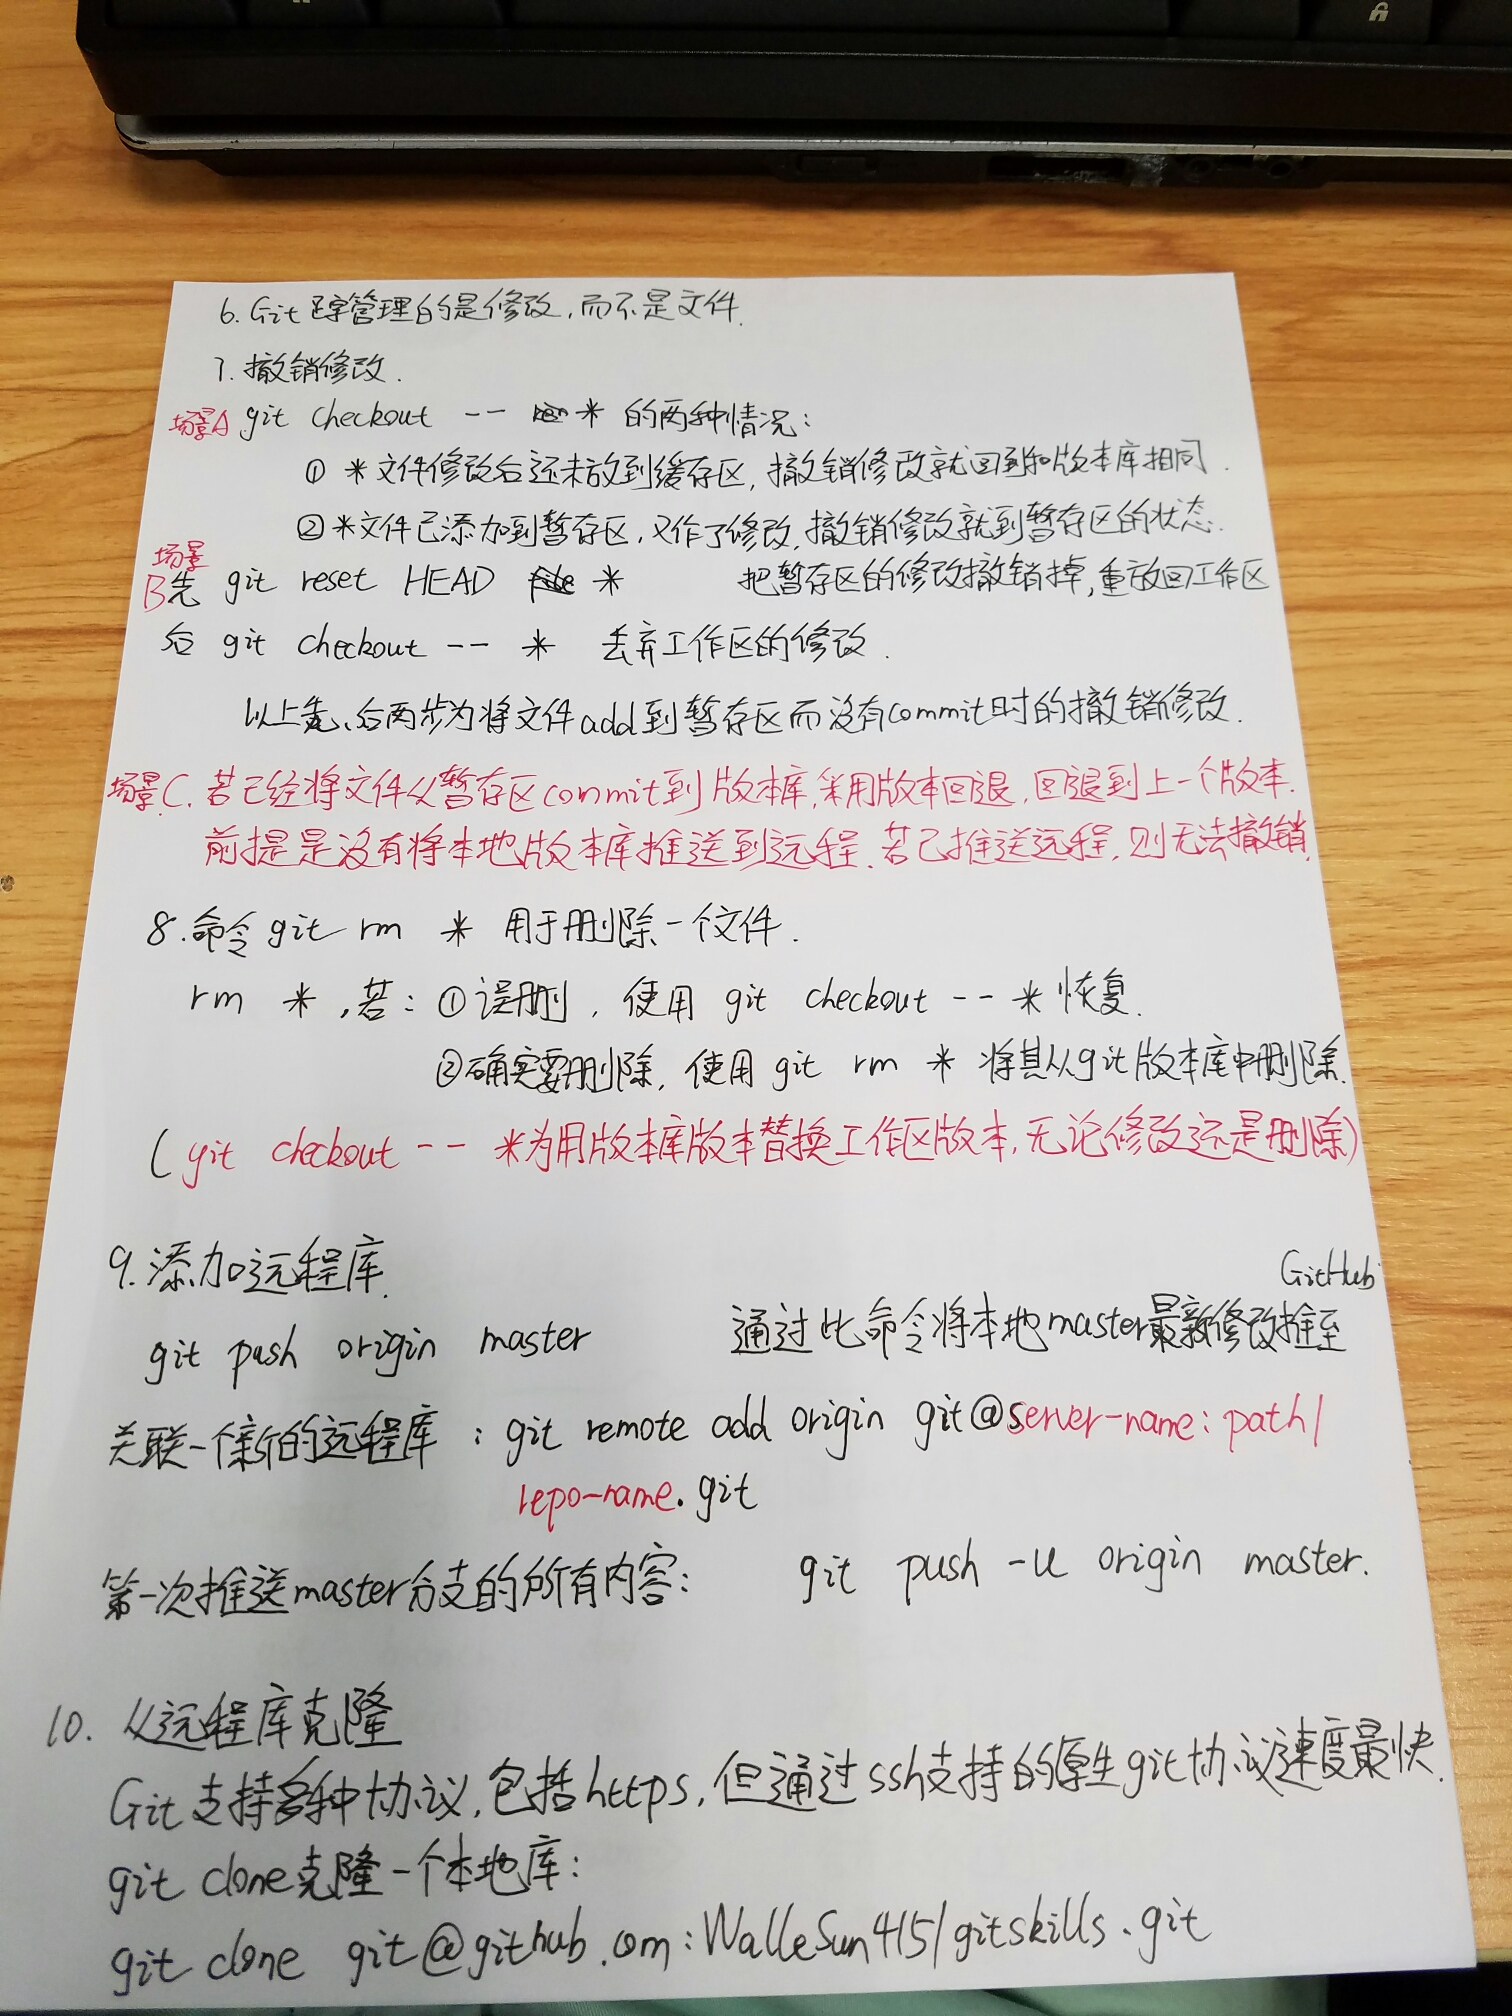 6. Git 跟踪管理的是修改,而不是文件.
7. 撤销修改.
场景A git checkout -- * 的两种情况:
① *文件修改后还未放到缓存区,撤销修改就回到和版本库相同.
② *文件已添加到暂存区,又作了修改,撤销修改就到暂存区的状态.
场景
B先 git reset HEAD * 把暂存区的修改撤销掉,重放回工作区
后 git checkout -- * 丢弃工作区的修改.
以上先、后两步为将文件add到暂存区而没有commit时的撤销修改.
场景C. 若已经将文件从暂存区commit到版本库,采用版本回退,回退到上一个版本.
前提是没有将本地版本库推送到远程.若已推送远程,则无法撤销.
8.命令 git rm * 用于删除一个文件.
rm * ,若: ①误删, 使用 git checkout -- * 恢复.
②确实要删除, 使用 git rm * 将其从git版本库中删除.
( git checkout -- *为用版本库版本替换工作区版本,无论修改还是删除)
9.添加远程库.
GitHub
git push origin master 通过此命令将本地master最新修改推至
关联一个新的远程库 : git remote add origin git@server-name:path/
repo-name.git
第一次推送master分支的所有内容: git push -u origin master.
10. 从远程库克隆
Git支持多种协议,包括https,但通过ssh支持的原生git协议速度最快.
git clone克隆一个本地库:
git clone git@github.com:WalleSun415/gitskills.git